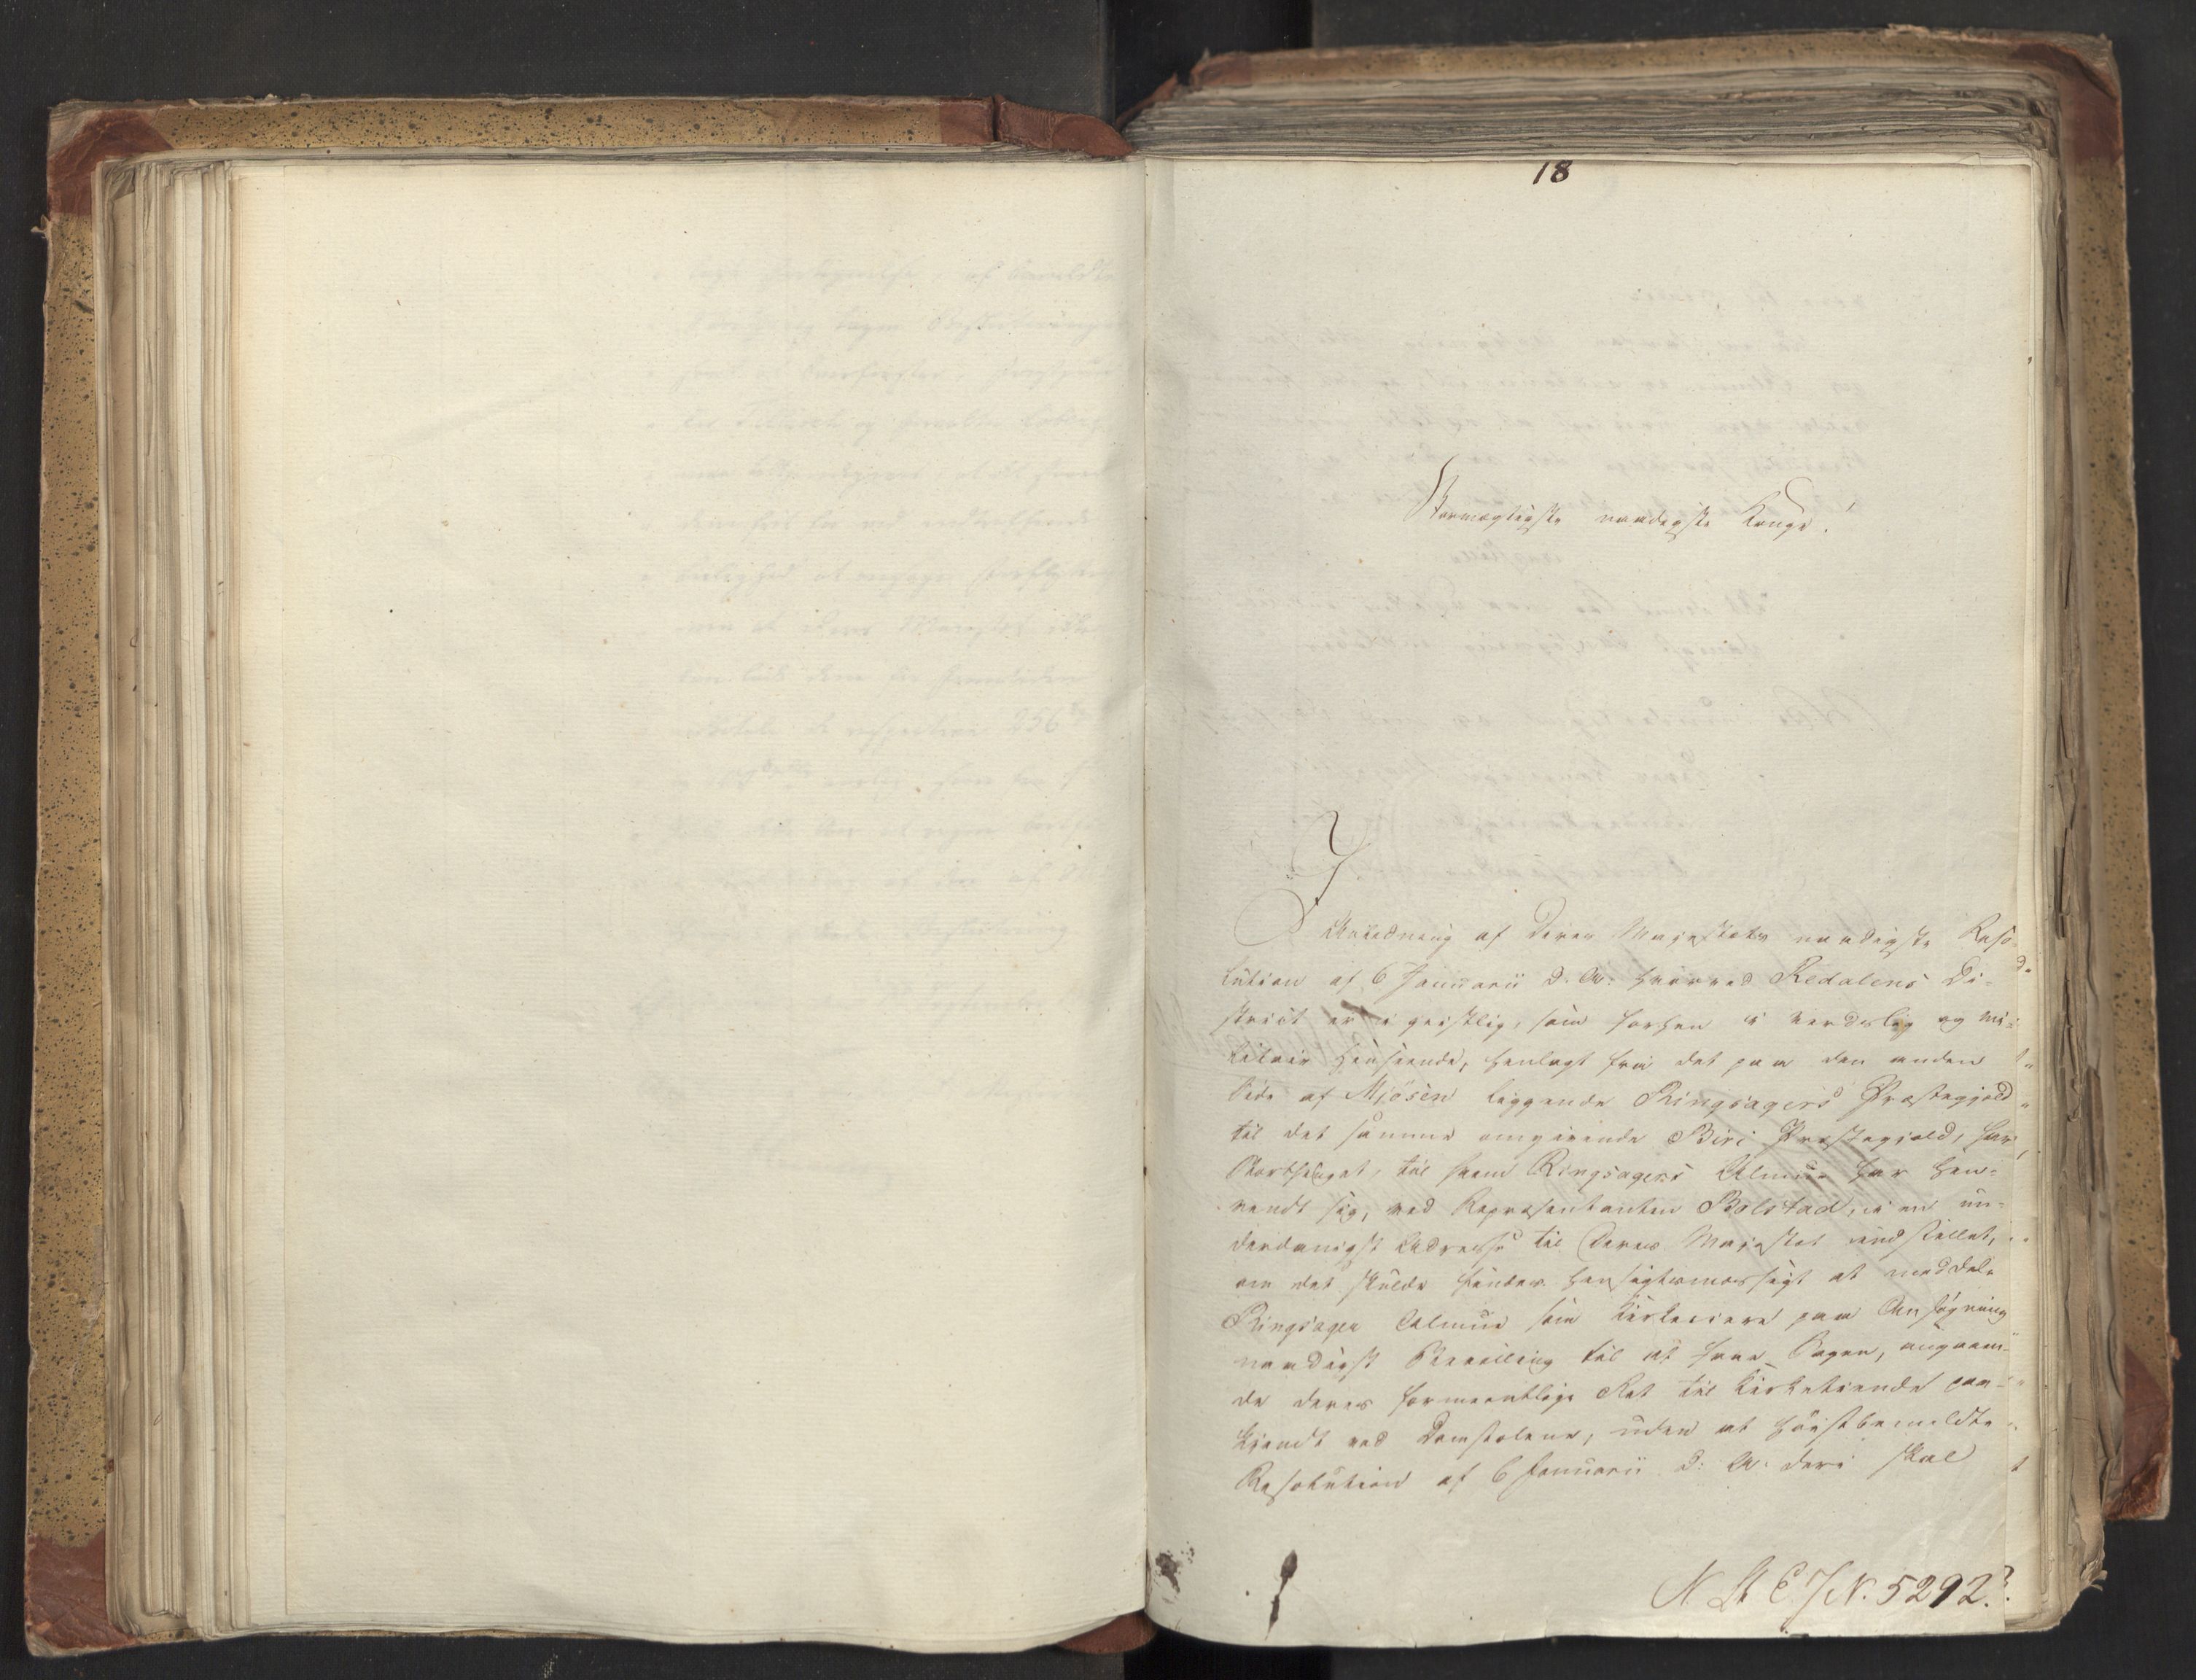 18
Stormægtigste naadigste Konge!
I Anledning af Deres Majestæts naadigste Reso-
lution af 6 Januarii d. A. hvorved Redalens Di-
strict er i geistlig, som forhen i verdslig og mi-
litair Henseende, henlagt fra det paa den anden
Side af Mjösen liggende Ringsagers Præstegjeld
til det samme omgivende Biri Præstegjeld, har
Storthinget, til hvem Ringsagers Almue har hen-
vendt sig, ved Repræsentanten Bolstad, i en un-
derdanigst Adresse til Deres Majestæt indstillet,
om det skulde findes hensigtsmæssigt at meddele
Ringsager Almue som Kirkeeiere paa Ansögning
naadigst Bevilling til at faae Sagen, angaaen-
de deres formeentlige Ret til Kirketiende paa-
kjendt ved Domstolene, uden at höistbemeldte
Resolution af 6 Januarii d: A: deri skal
N. St. E. J. N. 5292.